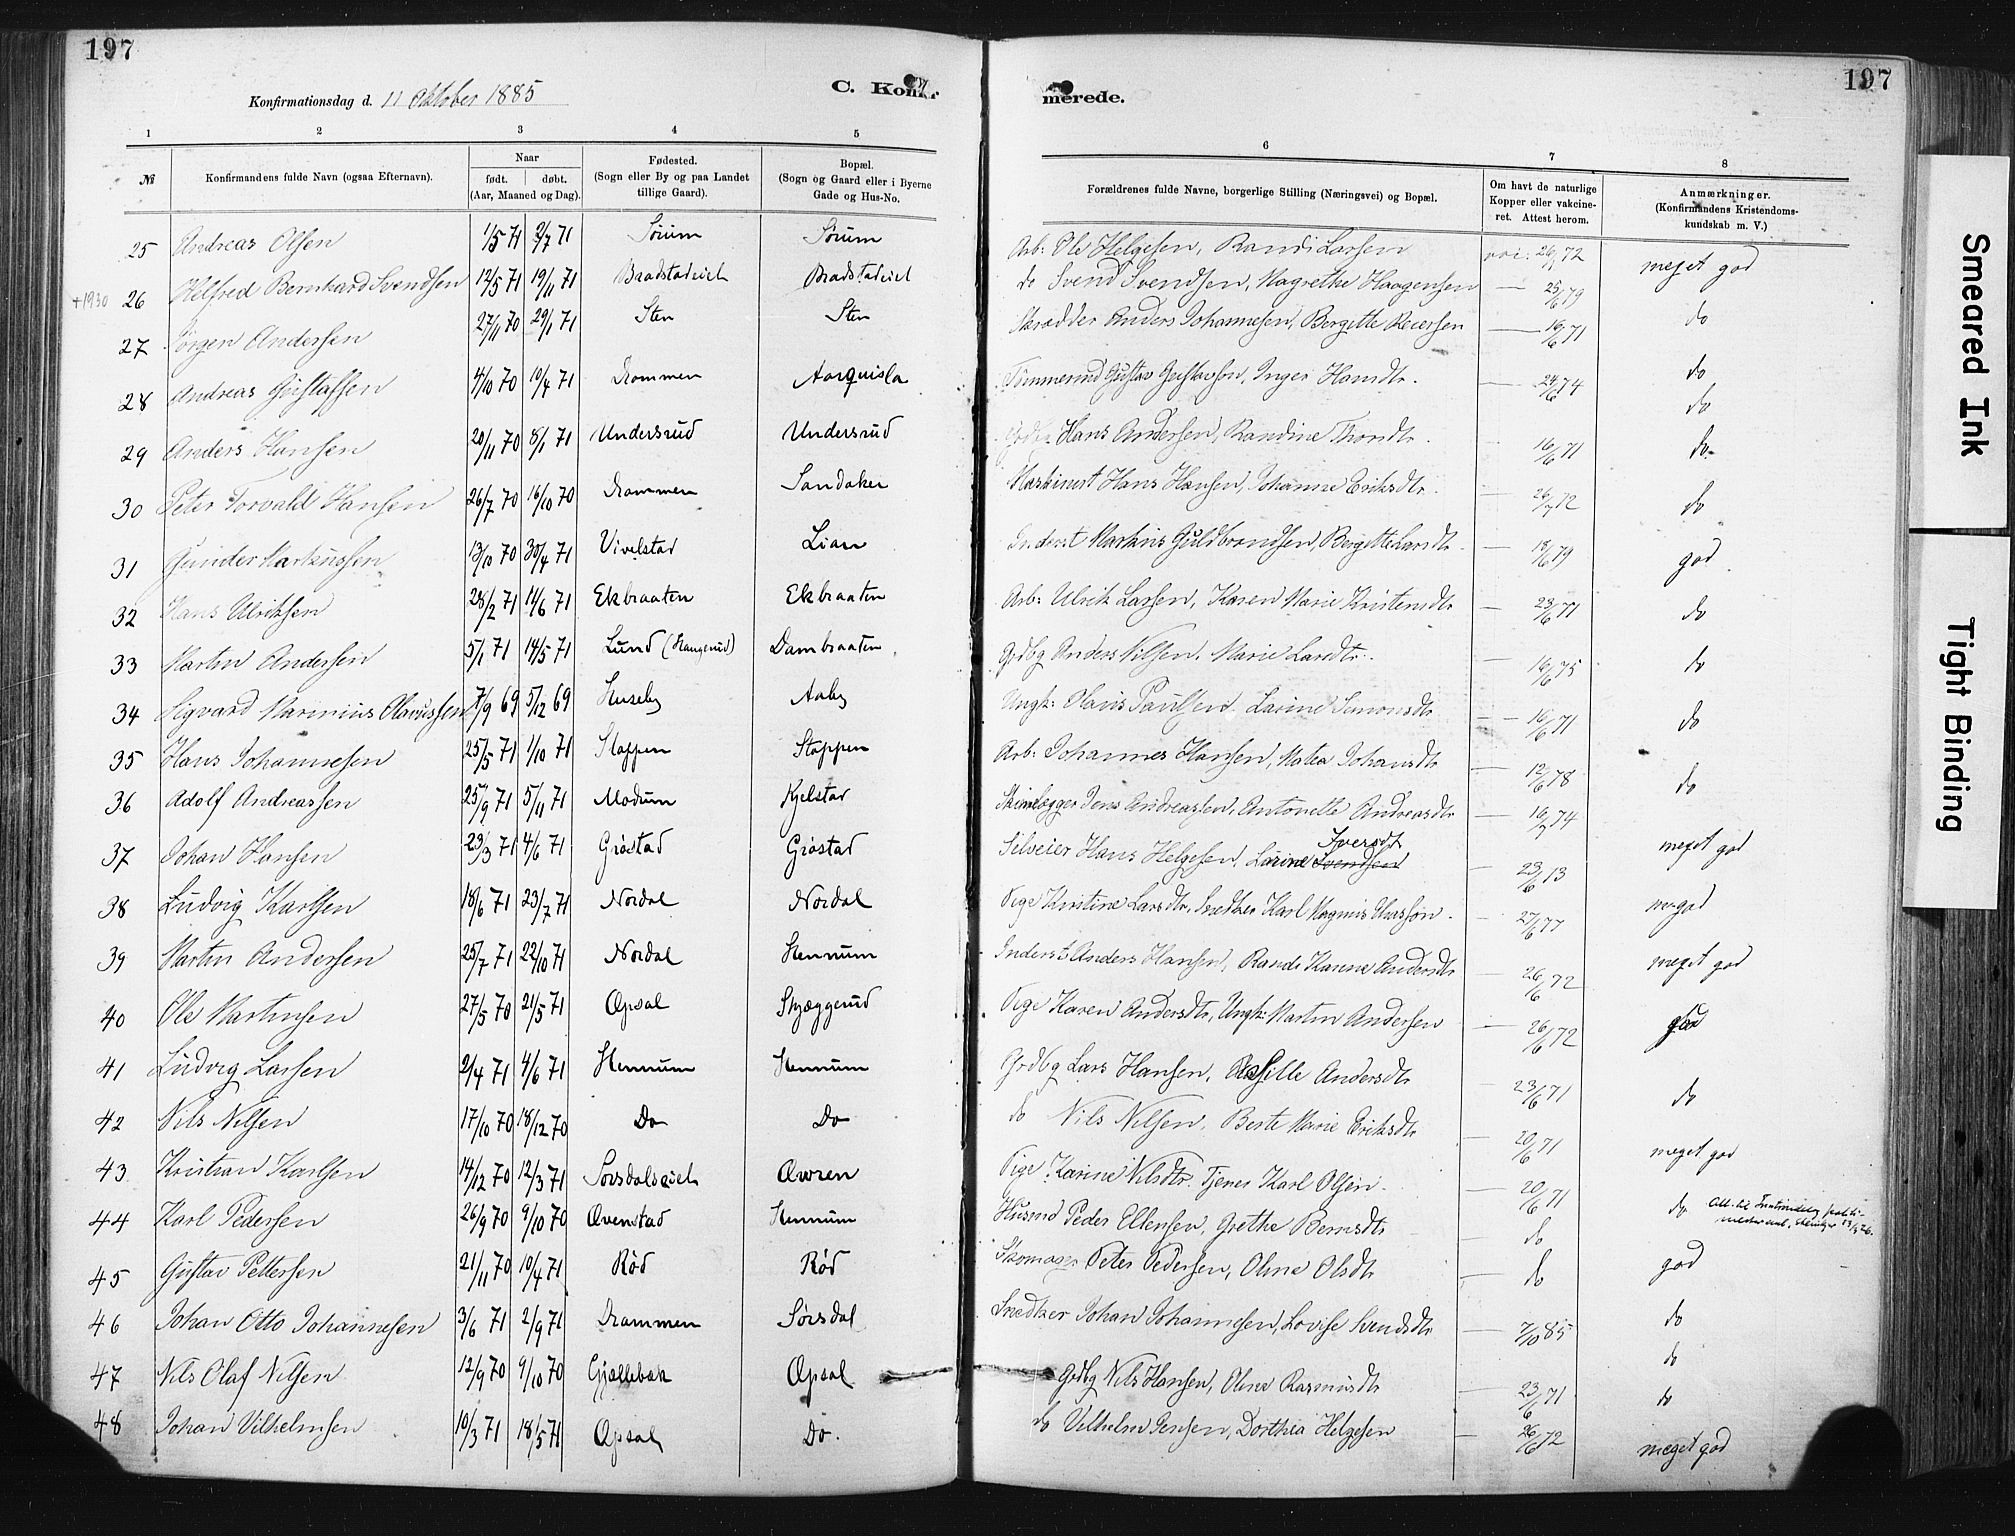 197
197
Konfirmationsdag d. 11 Oktober 1885
C. Konfir
merede.
1 2 3 4 5 6 7 8
№
Konfirmandens fulde Navn (ogsaa Efternavn).
Naar
født. døbt.
(Aar, Maaned og Dag).
Fødested.
(Sogn eller By og paa Landet
tillige Gaard).
Bopæl.
(Sogn og Gaard eller i Byerne
Gade og Hus-No.
Forældrenes fulde Navne, borgerlige Stilling (Næringsvei) og Bopæl.
Om havt de naturlige
Kopper eller vakcine-
ret. Attest herom.
Anmærkninger.
(Konfirmandens Kristendoms-
kundskab m. V.)
25 Andreas Olsen 1/5 71 2/7 71 Sørum Sørum Arb: Ole Helgesen, Randi Larsen 26/6 72 meget god
+1930 26 Helfred Bernhard Svendsen 12/5 71 19/11 71 Bradstadeiet Bradstadeiet do Svend Svendsen, Magrethe Haagensen — 25/6 79 do
27 Jørgen Andersen 27/11 70 29/1 71 Sten Sten Skrædder Anders Johannesen, Bergitte — 16/6 71 do
28 Andreas Gustafsen 4/10 70 10/4 71 Drammen Aarquisla Gustav Gustavson, Inger Hansdtr. — 24/6 74 do
29 Anders Hansen 20/11 70 8/1 71 Undersrud Undersrud Grdbr Hans Andersen, Randine Thordtr. — 16/6 71 do
30 Peter Torvald Hansen 26/7 70 16/10 70 Drammen Sandaker Maskinist Hans Hansen, Johanne Eriksdtr. — 26/7 72 do
31 Gunder Markussen 13/10 70 30/4 71 Vivelstad Lian Inderst Markus Guldbrandsen, Bergitte Larsdtr. — 18/6 79 god
32 Hans Ulriksen 28/2 71 11/6 71 Ekbraaten Ekbraaten Arb: Ulrik Larsen, Karen Marie Kristensdtr — 23/6 71 do
33 Martin Andersen 5/1 71 14/5 71 Lund (Haugerud) Dambraaten Grdbg Anders Nilsen, Marie Larsdtr. — 16/6 75 do
34 Sigvard Marinius Olaussen 7/9 69 5/12 69 Huseby Aaby Ungk: Olaus Paulsen, Larine Simonsdtr — 16/6 71 do
35 Hans Johannesen 25/5 71 1/10 71 Stoppen Stoppen Arb: Johannes Hansen, Matea Johansdtr — 12/6 78 do
36 Adolf Andreassen 25/9 71 5/11 71 Modum Kjelstad Jens Andreassen, Antonette Andreasdtr — 16/7 74 meget god
37 Johan Hansen 23/3 71 4/6 71 Grøstad Grøstad Selveier Hans Helgesen, Larine Svendsen Iversdt — 23/6 73
38 Ludvig Karlsen 18/6 71 23/7 71 Nordal Nordal Pige Kristine Larsdtr, Snedker Karl Magnus — 27/6 77 m god
39 Martin Andersen 25/7 71 22/10 71 Nordal Hennum Inderst Anders Hansen, Randi Karine Andersdtr — 26/6 72 meget god
40 Ole Martinsen 27/5 70 21/5 71 Opsal Skjæggerud Pige Karen Andersdtr, Ungk: Martin Andersen — 26/6 72 god
41 Ludvig Larsen 2/4 71 4/6 71 Hennum Hennum Grdbg Lars Hansen, Andersdtr — 23/6 71 do
42 Nils Nilsen 17/10 70 18/12 70 Do Do do Nils Nilsen, Berte Marie Eriksdtr — 20/6 71 meget god
43 Kristian Karlsen 14/12 70 12/3 71 Sørsdalseiet Øvren Pige Karine Nilsdtr. Tjener Karl Olsen — 20/6 71 do
44 Karl Pedersen 26/9 70 9/10 70 Øvenstad Hennum Husmd Peder Ellensen, Grethe Berntsdtr — do god
45 Gustav Pettersen 21/11 70 10/4 71 Rød Rød Skomager Peter Pedersen, Oline Olsdtr — do do
46 Johan Otto Johannesen 3/6 71 2/9 71 Drammen Sørsdal Snedker Johan Johannesen, Lovise Svendsdtr — 7/10 85 do
47 Nils Olaf Nilsen 12/9 70 9/10 70 Gjellebæk Opsal Grdbg Nils Hansen, Oline Rasmusdtr — 23/6 71 do
48 Johan Vilhelmsen 10/3 71 18/5 71 Opsal Do. do Vilhelm Jensen, Dorthea Helgesen — 26/6 72 meget god
Smeared Ink
Tight Binding